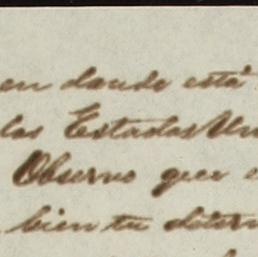 en donde está
las Estados Un
Observo que
bien tu deter